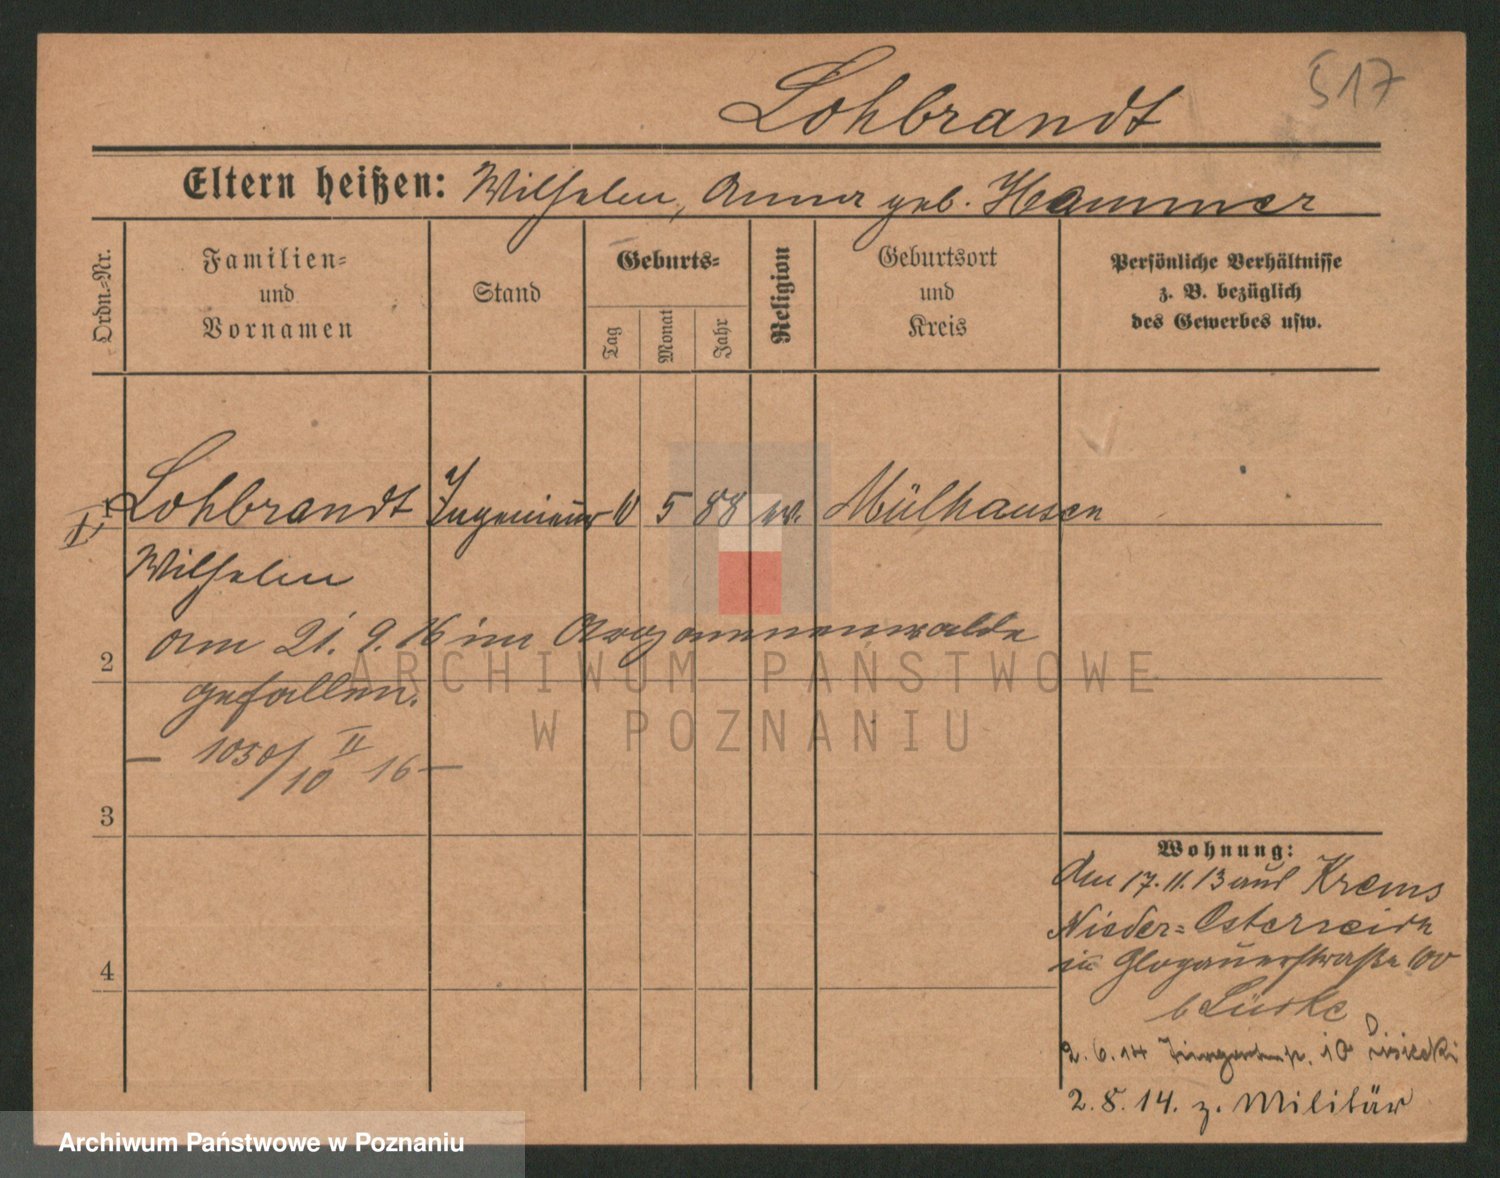 517
Lohbrandt
Eltern heißen: Wilhelm, Anna geb. Hammer
Ordn.-Nr.
Familien- und Vornamen
Stand
Geburts-
Tag
Monat
Jahr
Religion
Geburtsort und Kreis
Persönliche Verhältnisse z. B. bezüglich des Gewerbes usw.
1 Lohbrandt Ingenieur 10 5 88 ev. Mülhausen
Wilhelm
am 21. 9. 16 im Argonnenwalde
2
gefallen.
— 1050/10 II 16 —
3
4
Wohnung:
Am 17.11.13 aus Krems
Nieder-Österreich
in Glogauerstraße 100
b
2.6.14 10
2.8.14. z. Militär
ARCHIWUM PAŃSTWOWE
W POZNANIU
Archiwum Państwowe w Poznaniu